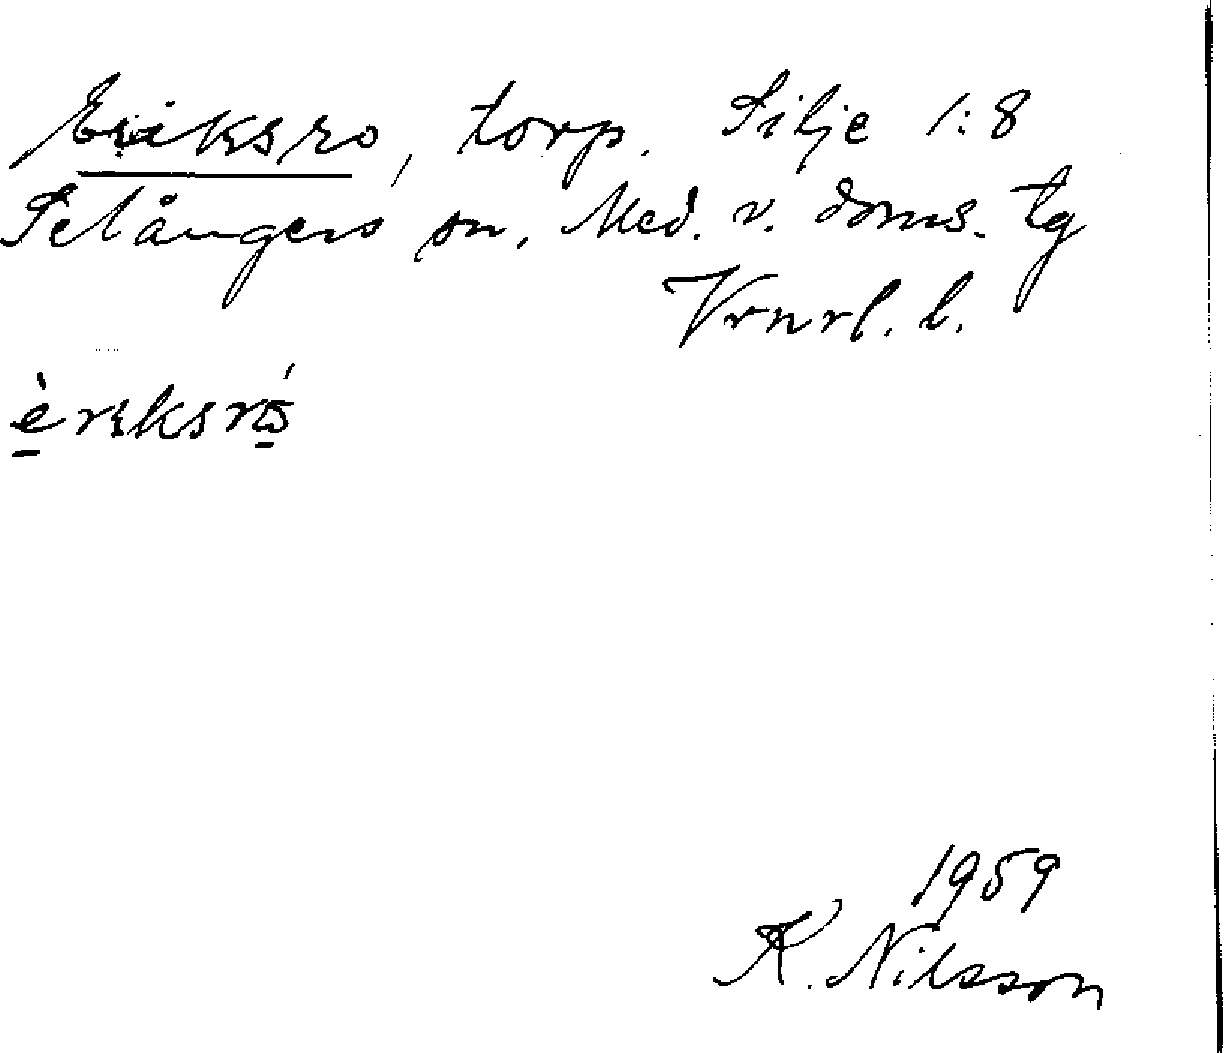 Eriksro, torp. Silje 1:8
Selångers sn. Med. v. doms. tg
Vrnrl. l.
èriksró
1959
K. Nilsson